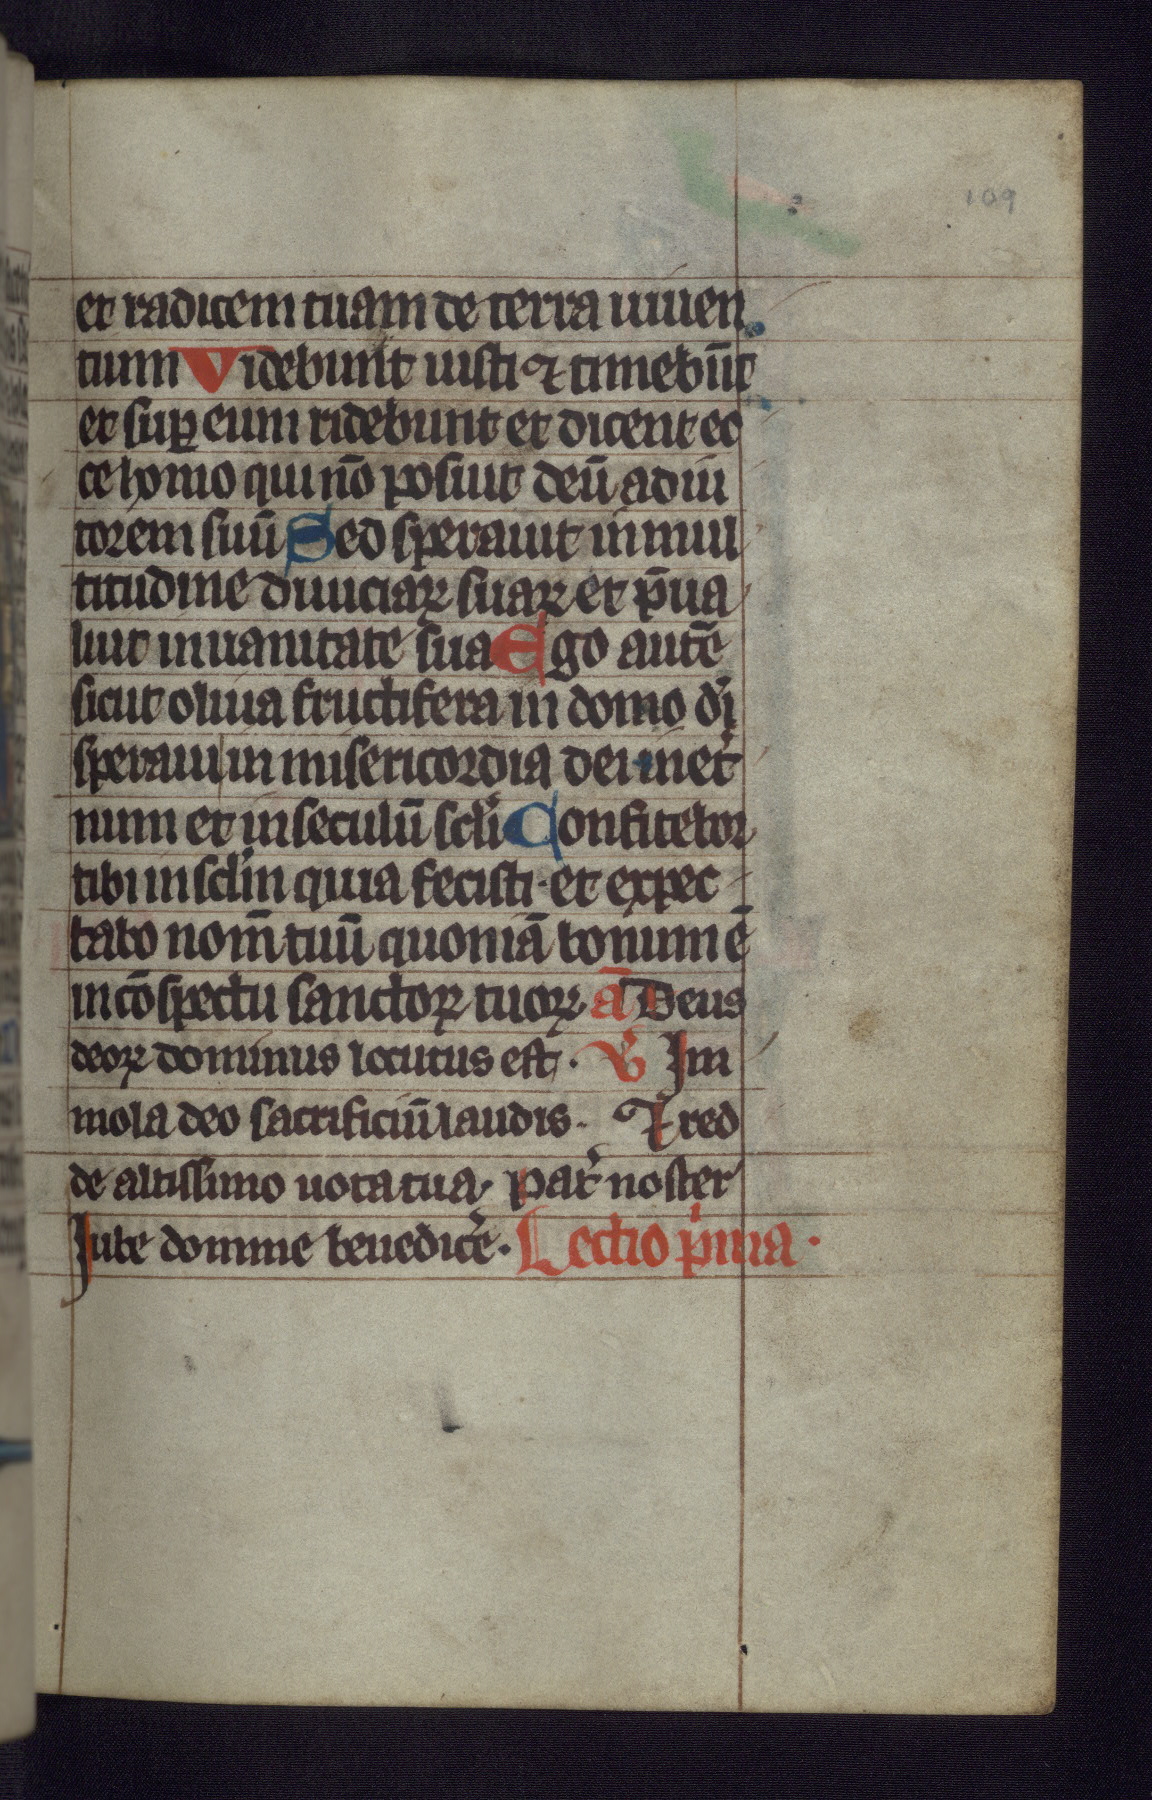 109
et radicem tuam de terra uiuen
tium Videbunt iusti ⁊ timebūt
et suꝑ eum ridebunt et dicent ec
ce homo qui nō posuit deū adiu
torem suū Sed sperauit in mul
titudine diuiciaꝝ suaꝝ et p̄ua
luit in uanitate sua Ego autē
sicut oliua fructifera in domo dī
speraui in misericordia dei in et̾
num et in seculū scłi Confitebor
tibi in scłm quia fecisti · et expec
tabo nom̄ tuū quoniā bonum ē
in cōspectu sanctoꝝ tuoꝝ ā Deus
deoꝝ dominus locutus est · ℣ Im
mola deo sacrificiū laudis · ⁊ red
de altissimo uota tua · Pat̾ noster
Iube domine benedic̾e · Lectio p̾ma ·